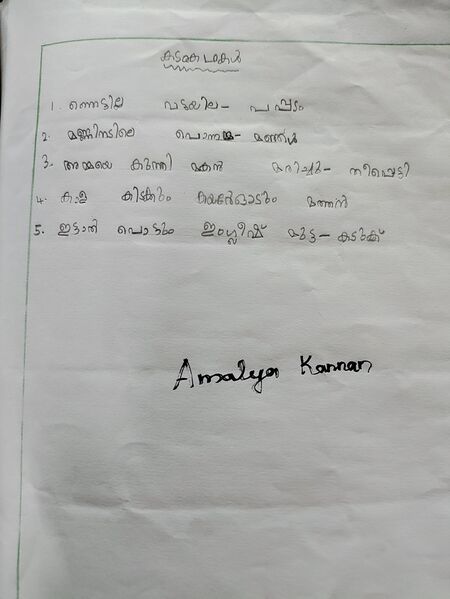 കടങ്കഥകൾ
1. ഞെട്ടില്ല വട്ടയില - പപ്പടം
2. മണ്ണിനടിലെ പൊന്നമ്മ - മഞ്ഞൾ
3. അമ്മയെ കുത്തി മകൻ മരിച്ചു - തീപ്പെട്ടി
4. കാള കിടക്കും കയറോടും മത്തൻ
5. ഇട്ടാൽ പൊട്ടും ഇംഗ്ലീഷ് മുട്ട - കടുക്
Amalya Kannan